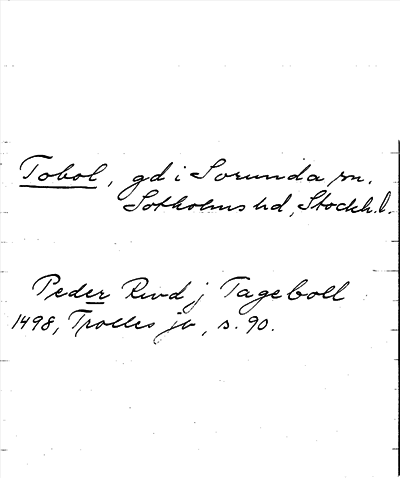 Tobol, gd i Sorunda sn.
Sotholms hd, Stockh. l.
Peder Rwd j Tageboll
1498, Trolles jb, s. 90.